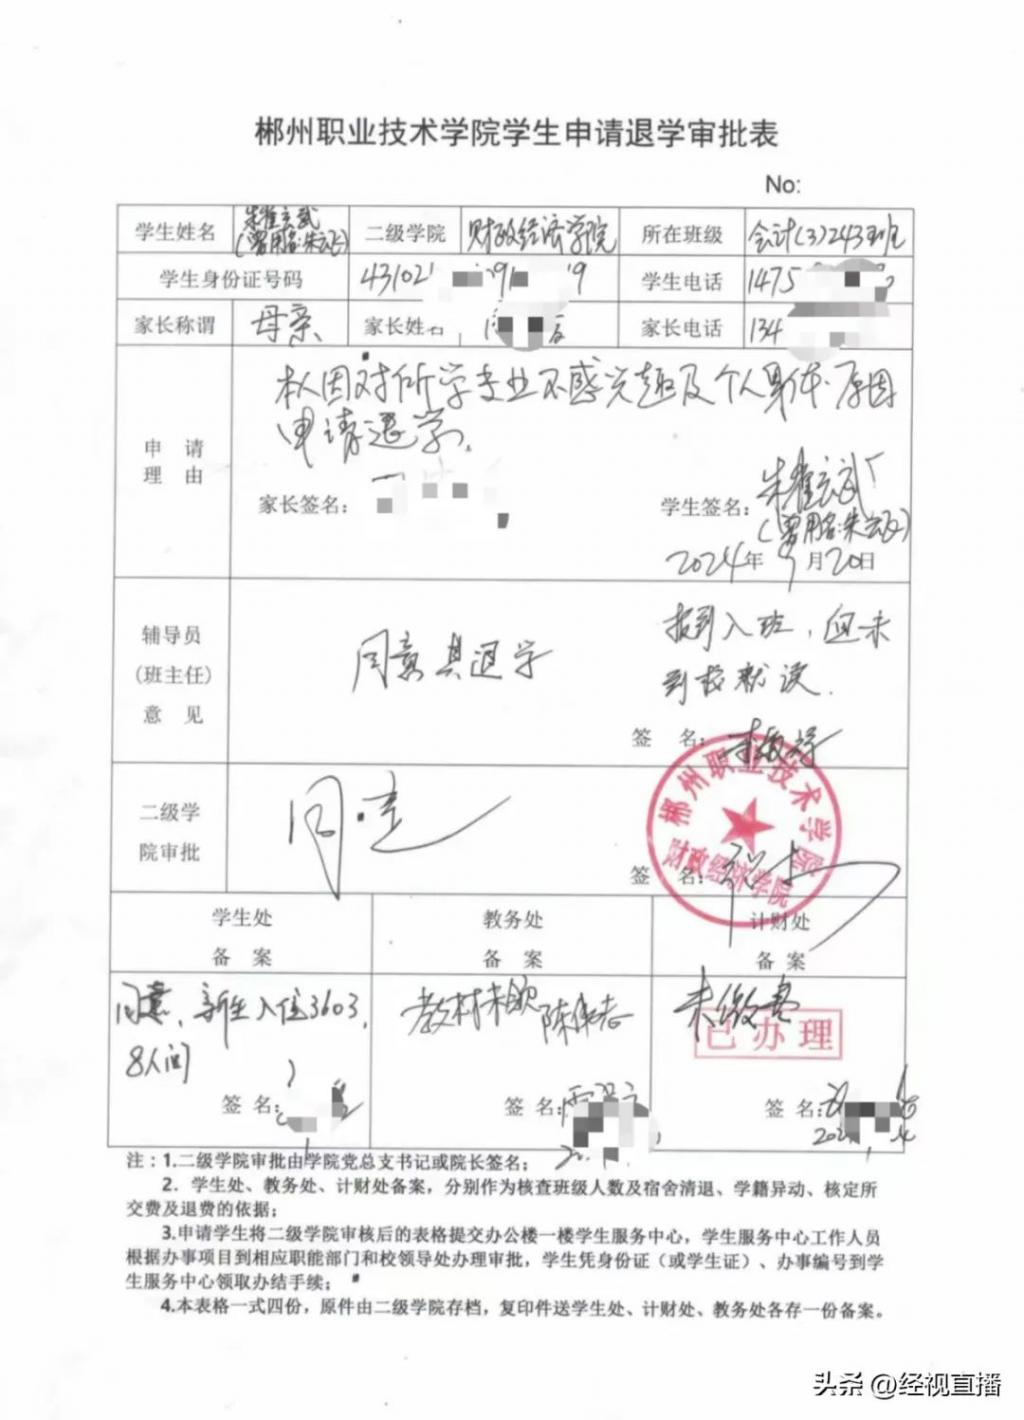 郴州职业技术学院学生申请退学审批表
No:
学生姓名 朱雀玄武 (曾用名:朱云飞) 二级学院 财政经济学院 所在班级 会计(3)243班
学生身份证号码 43102 9 9 学生电话 1475
家长称谓 母亲 家长姓名 家长电话 134
申请理由
本人因对所学专业不感兴趣及个人身体原因
申请退学。
家长签名: 学生签名: 朱雀玄武
(曾用名:朱云飞)
2024年9月20日
辅导员
(班主任)
意见
同意其退学
报到入班,但未
到校就读.
签 名:
二级学
院审批
同意
签 名:
郴州职业技术学院
财政经济学院
学生处 教务处 计财处
备案 备案 备案
同意、新生入住3603,
8人间
教材未领
未缴费
已办理
签 名: 签 名: 签 名:
注:1.二级学院审批由学院党总支书记或院长签名;
2. 学生处、教务处、计财处备案,分别作为核查班级人数及宿舍清退、学籍异动、核定所
交费及退费的依据;
3.申请学生将二级学院审核后的表格提交办公楼一楼学生服务中心,学生服务中心工作人员
根据办事项目到相应职能部门和校领导处办理审批,学生凭身份证(或学生证)、办事编号到学
生服务中心领取办结手续;
4.本表格一式四份,原件由二级学院存档,复印件送学生处、计财处、教务处各存一份备案。
头条 @经视直播